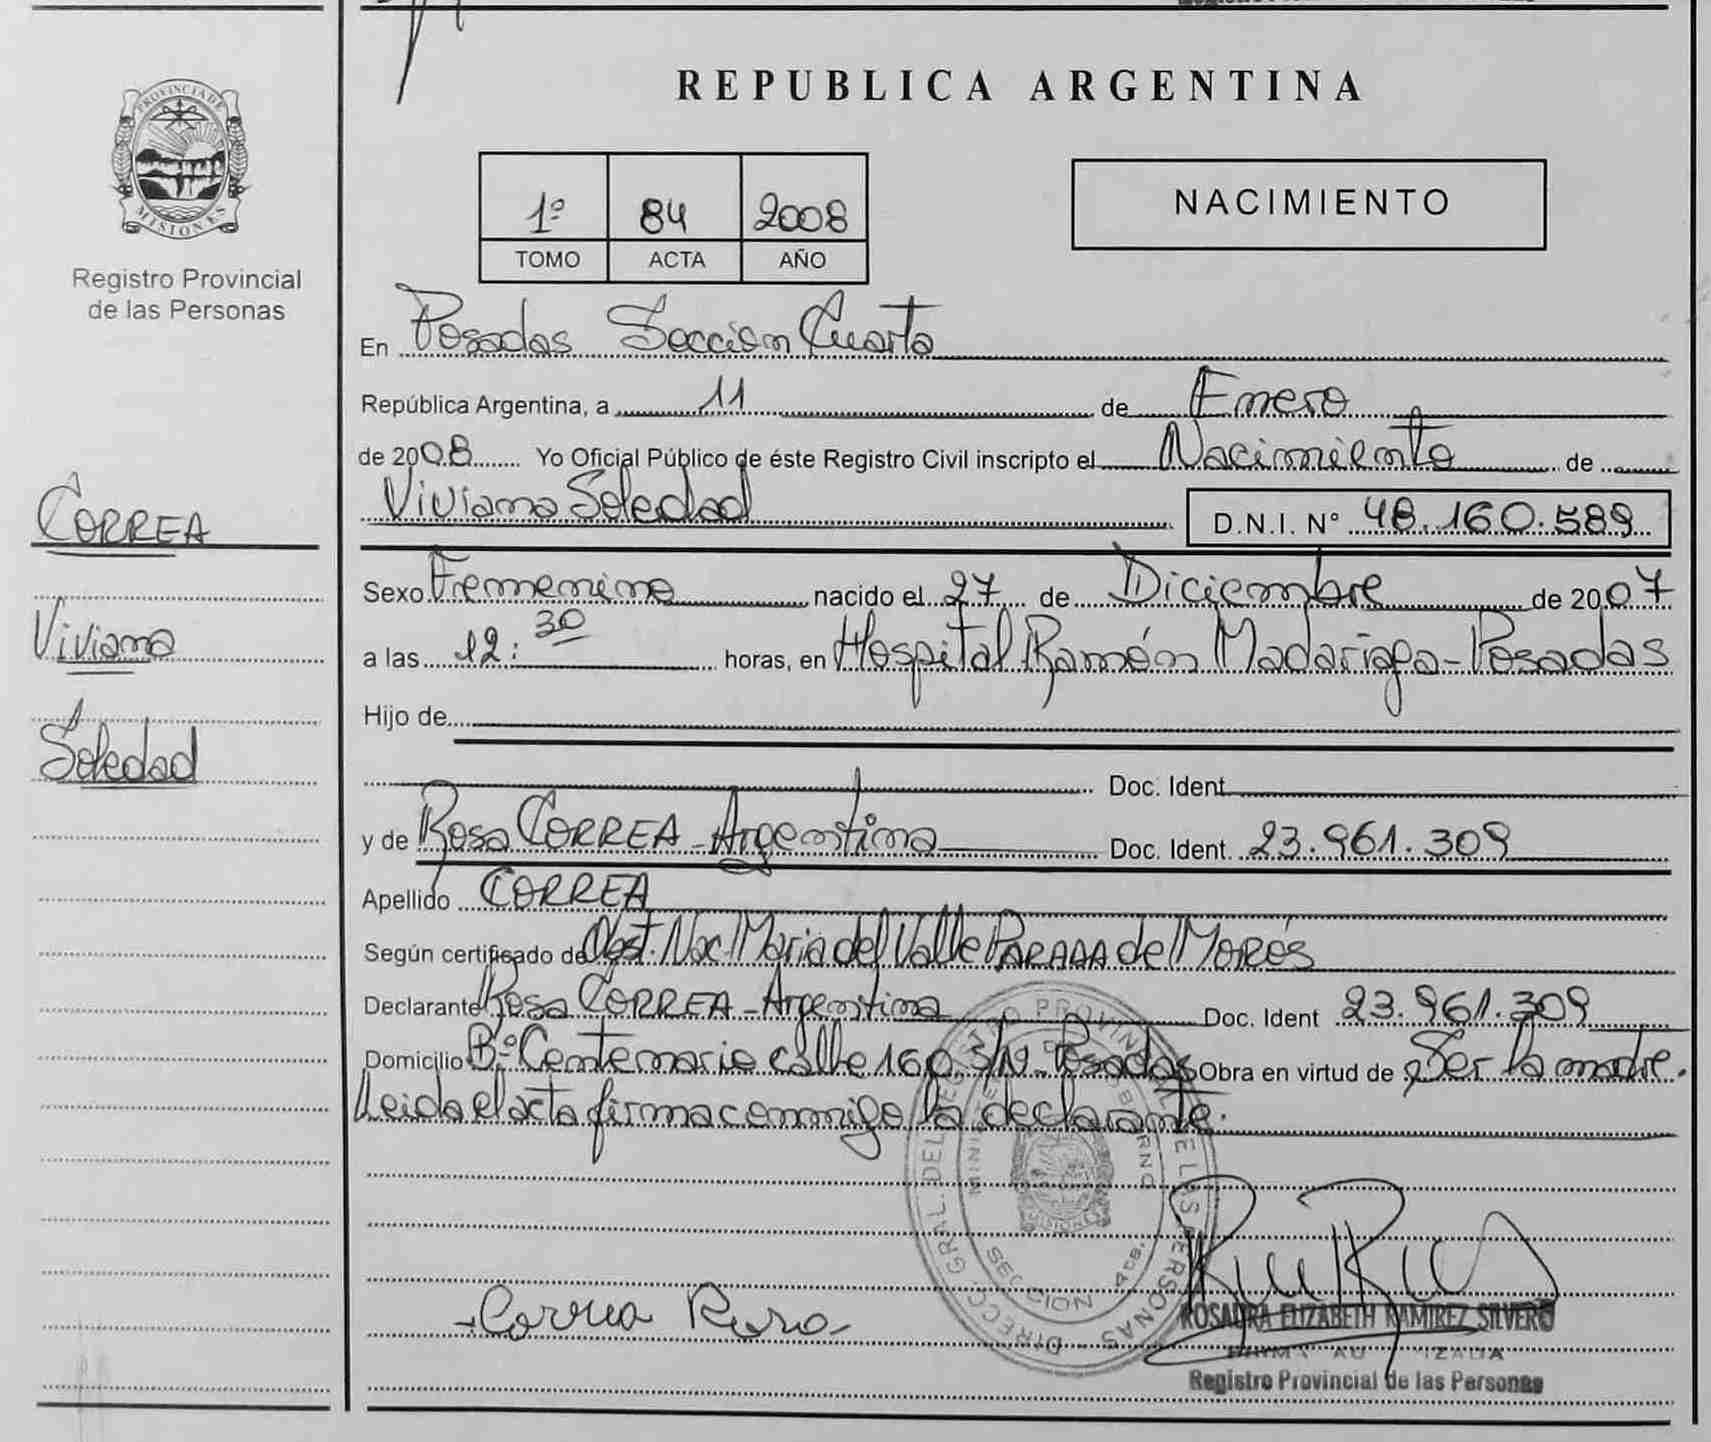 REPUBLICA ARGENTINA
PROVINCIA DE
MISIONES
Registro Provincial
de las Personas
1º 84 2008
TOMO ACTA AÑO
NACIMIENTO
CORREA
Viviana
Soledad
En Posadas Sección Cuarta
República Argentina, a 11 de Enero
de 2008 Yo Oficial Público de éste Registro Civil inscripto el Nacimiento de
Viviana Soledad D.N.I. Nº 48.160.589
Sexo Femenino nacido el 27 de Diciembre de 2007
a las 12:30 horas, en Hospital Ramón Madariaga - Posadas
Hijo de
Doc. Ident
y de Rosa CORREA - Argentina Doc. Ident. 23.961.309
Apellido CORREA
Según certificado de Obst. Nac. Maria del Valle PARADA de MORÉS
Declarante Rosa CORREA - Argentina Doc. Ident 23.961.309
Domicilio Bº Centenario calle 160 S/Nº - Posadas Obra en virtud de ser la madre.
Leida el acta firma conmigo la declarante.
DIRECC. GRAL. DEL REGISTRO PROVINCIAL DE LAS PERSONAS
SECCION 4
MISIONES
- Correa Rosa -
ROSAURA ELIZABETH RAMIREZ SILVERO
FIRMA
Registro Provincial de las Personas